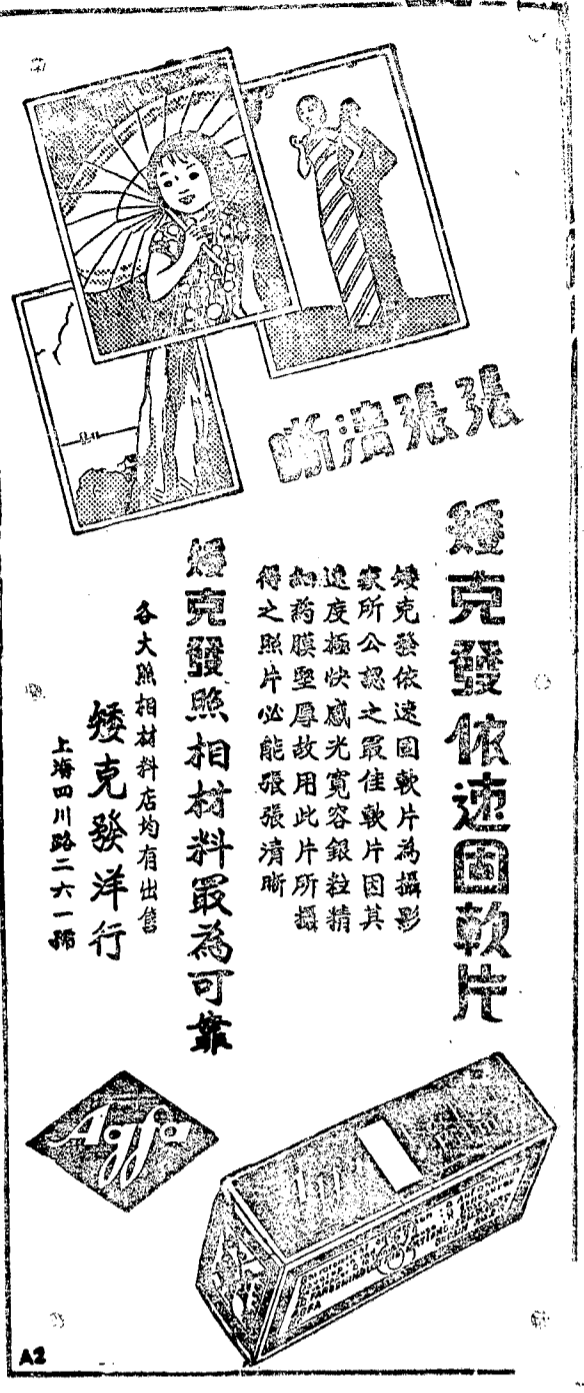 張張清晰
矮克發依速固軟片
矮克發依速固軟片為攝影
家所公認之最佳軟片因其
速度極快感光寬容銀粒精
細药膜堅厚故用此片所攝
得之照片必能張張清晰
矮克發照相材料最為可靠
各大照相材料店均有出售
矮克發洋行
上海四川路二六一號
Agfa
A2